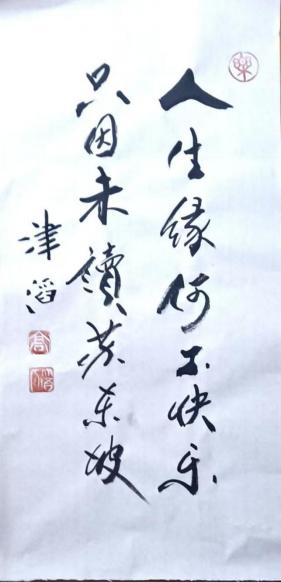 人生缘何不快乐
只因未读苏东坡
津滔